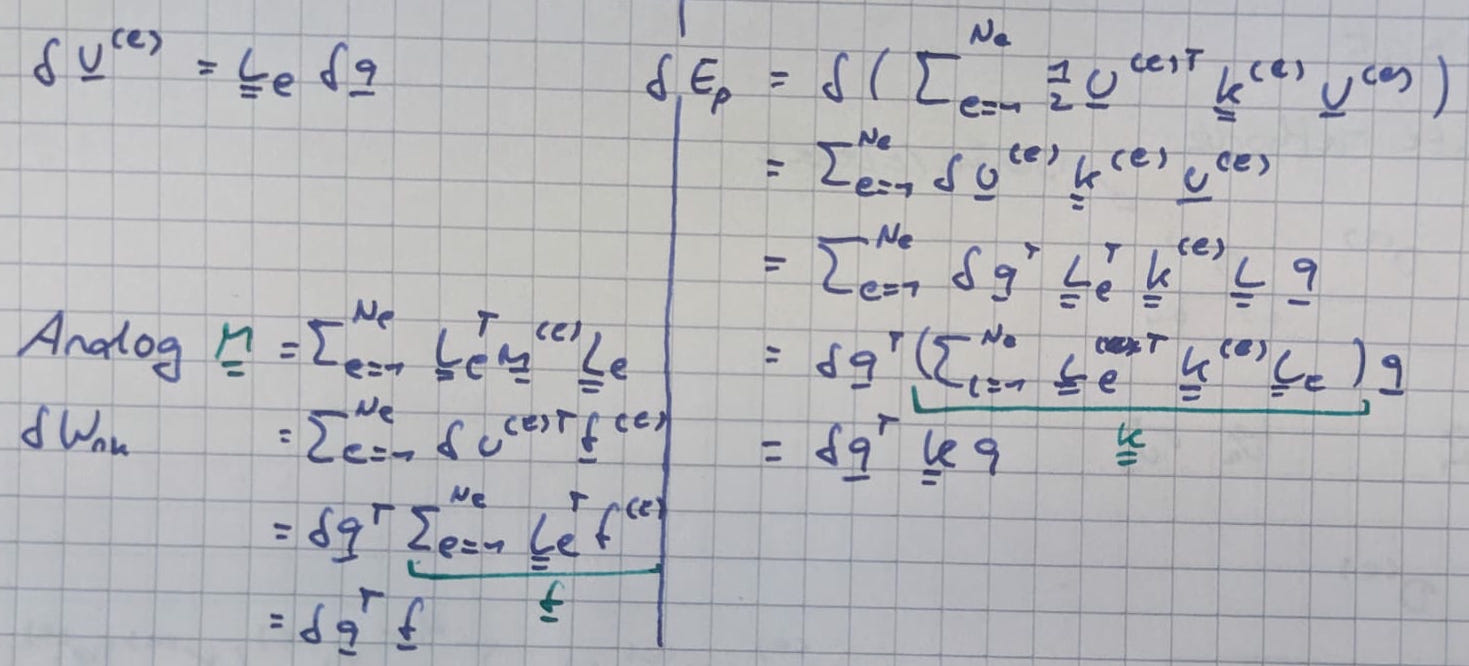 δu̲^(e) = L̳_e δq̲
Analog M̳ = Σ_{e=1}^{Ne} L̳_e^T m̳^(e) L̳_e
δW_nk = Σ_{e=1}^{Ne} δu^(e)T f̲^(e)
= δq̲^T Σ_{e=1}^{Ne} L̳_e^T f^(e)
f̲
= δq̲^T f̲
δE_p = δ( Σ_{e=1}^{Ne} 1/2 u̲^(e)T k̳^(e) u̲^(e) )
= Σ_{e=1}^{Ne} δu̲^(e) k̳^(e) u̲^(e)
= Σ_{e=1}^{Ne} δq̲^T L̳_e^T k̳^(e) L̳ q̲
= δq̲^T ( Σ_{e=1}^{Ne} L̳_e^T k̳^(e) L̳_e ) q̲
k̳
= δq̲^T k̳ q